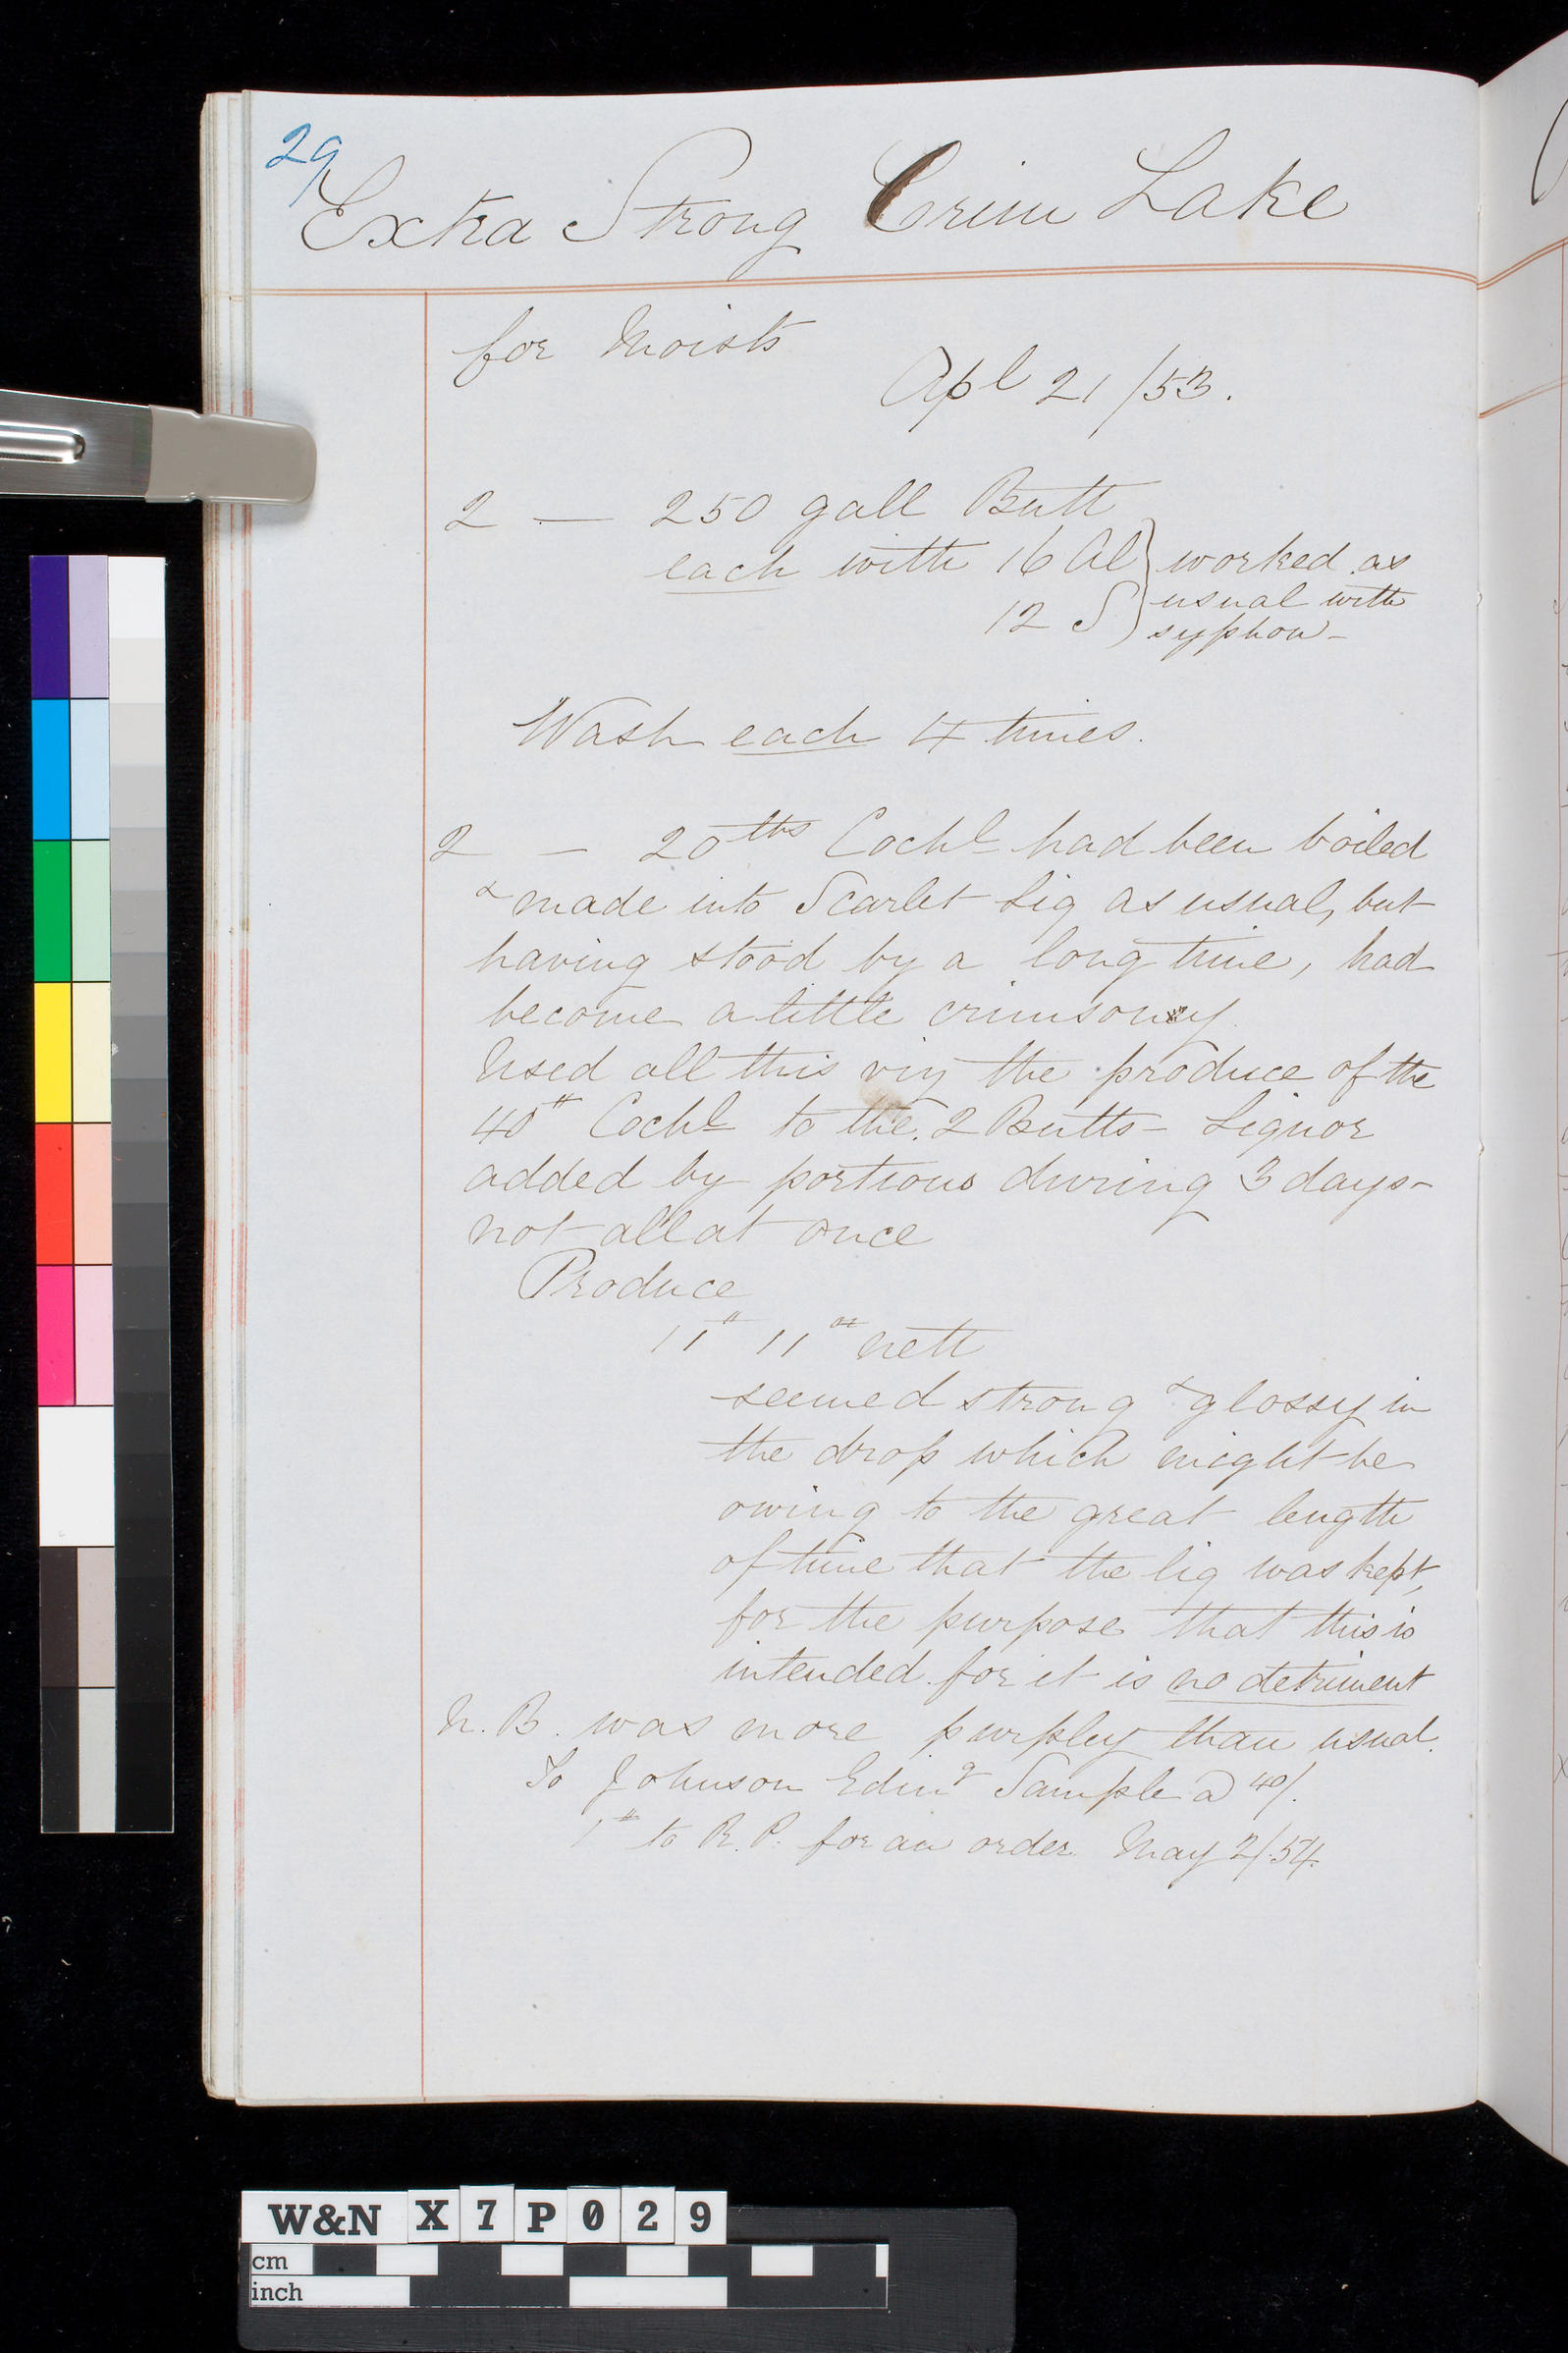 29
Extra Strong Crim Lake
for Moists
Apl 21/53.
2 — 250 gall Butt
each with 16 Al } worked as
12 S } usual with
syphon -
Wash each 4 times.
2 — 20 lbs Cochl had been boiled
& made into Scarlet Liq as usual, but
having stood by a long time, had
become a little crimsony
Used all this viz the produce of the
40# Cochl to the 2 Butts - Liquor
added by portions during 3 days -
not all at once
Produce
11# 11oz nett
seemed strong & glossy in
the drop which might be
owing to the great length
of time that the liq was kept,
for the purpose that this is
intended for it is no detriment
N.B. was more purpley than usual.
To Johnson Eding Sample @ 40/.
1# to R.P. for an order May 2/.54.
W&N X7P029
cm
inch